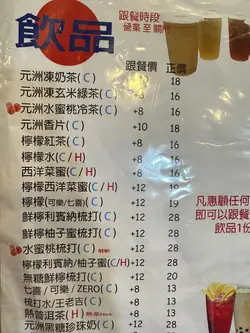 飲品
跟餐時段
營業至關門
跟餐價 正價
元洲凍奶茶(C) +8 18
元洲凍玄米綠茶(C) +8 18
元洲水蜜桃冷茶(C) +8 16
元洲香片(C) +10 18
檸檬紅茶(C) +8 16
檸檬水(C/H) +8 16
西洋菜蜜(C/H) +8 16
檸檬西洋菜蜜(C/H) +12 19
檸檬(可樂/七喜)(C) +12 19
鮮檸利賓納梳打(C) +12 28
鮮檸柚子蜜梳打(C) +12 28
水蜜桃梳打(C) NEW! +12 28
檸檬利賓納/柚子蜜(C/H) +12 28
無糖鮮檸梳打(C) +12 20
七喜/可樂/ZERO(C) +8 13
梳打水/王老吉(C) +8 13
熱普洱茶(H) +8 13
元洲黑糖珍珠奶(C) +12 28
凡惠顧任何
即可以跟餐
飲品1份